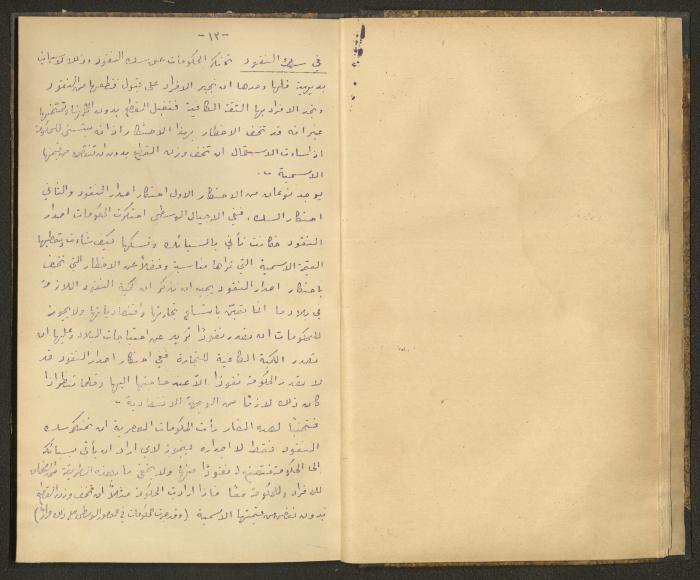 -١٣-
في سك النقود تحتكر الحكومات حق سك النقود وذلك لاسباب
بديهية فلها وحدها ان تجبر الافراد على قبول قطعها من النقود
وتجد الافراد بها الثقة الكافية فتقبل القطع بدون
غير انه قد تحف الاخطار بهذا الاحتكار اذ انه يتسنى للحكومة
اذا اساءت الاستعمال ان تخفف وزن القطع بدون ان تنقص من قيمتها
الاسمية .-
يوجد نوعان من الاحتكار الاول احتكار اصدار النقود والثاني
احتكار السك . ففي الاجيال الوسطى احتكرت الحكومات اصدار
النقود فكانت تأتي بالسبائك وتسكها كيف شاءت وتعطيها
القيمة الاسمية التي تراها مناسبة وفضلا عن الاخطار التي تحف
باحتكار اصدار النقود يجب ان نذكر ان كمية النقود اللازمة
في بلاد ما انما تتعين باتساع تجارتها واقتصادياتها ولا يجوز
للحكومات ان تصدر نقودًا تزيد عن احتياجات البلاد وعليها ان
تصدر الكمية الكافية للتجارة ففي احتكار اصدار النقود قد
لا تصدر الحكومة نقودًا الا عند حاجتها اليها وقلما تنظر اذا
كان ذلك لازمًا من الوجهة الاقتصادية .-
فتجنبًا لهذه المضار رأت الحكومات العصرية ان تحتكر سك
النقود فقط لا اصداره فيجوز لأي اراد ان يأتي بسبائك
الى الحكومة فتصنع له نقودًا منها ولا يخفى ما بهذه الطريقة من الضمان
للافراد وللحكومة معًا فاذا ارادت الحكومة مثلاً ان تخفف وزن القطع
بدون نقص من قيمتها الاسمية (وقد جرت الحكومات في العصور الوسطى على ذلك مرارًا)